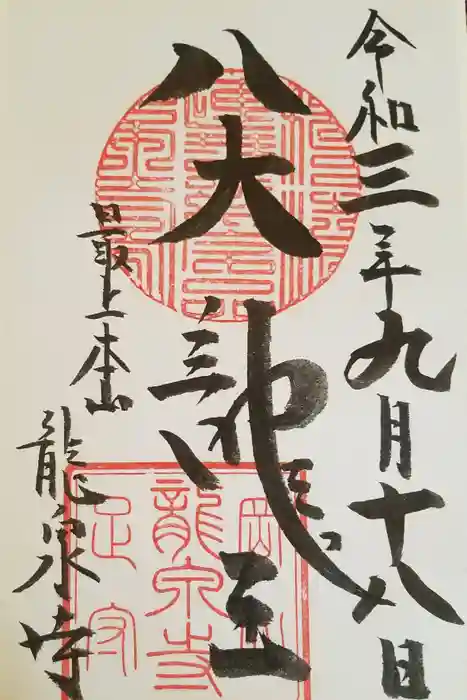 令和三年九月十八日
八大龍王
最上本山
龍泉寺
龍泉寺